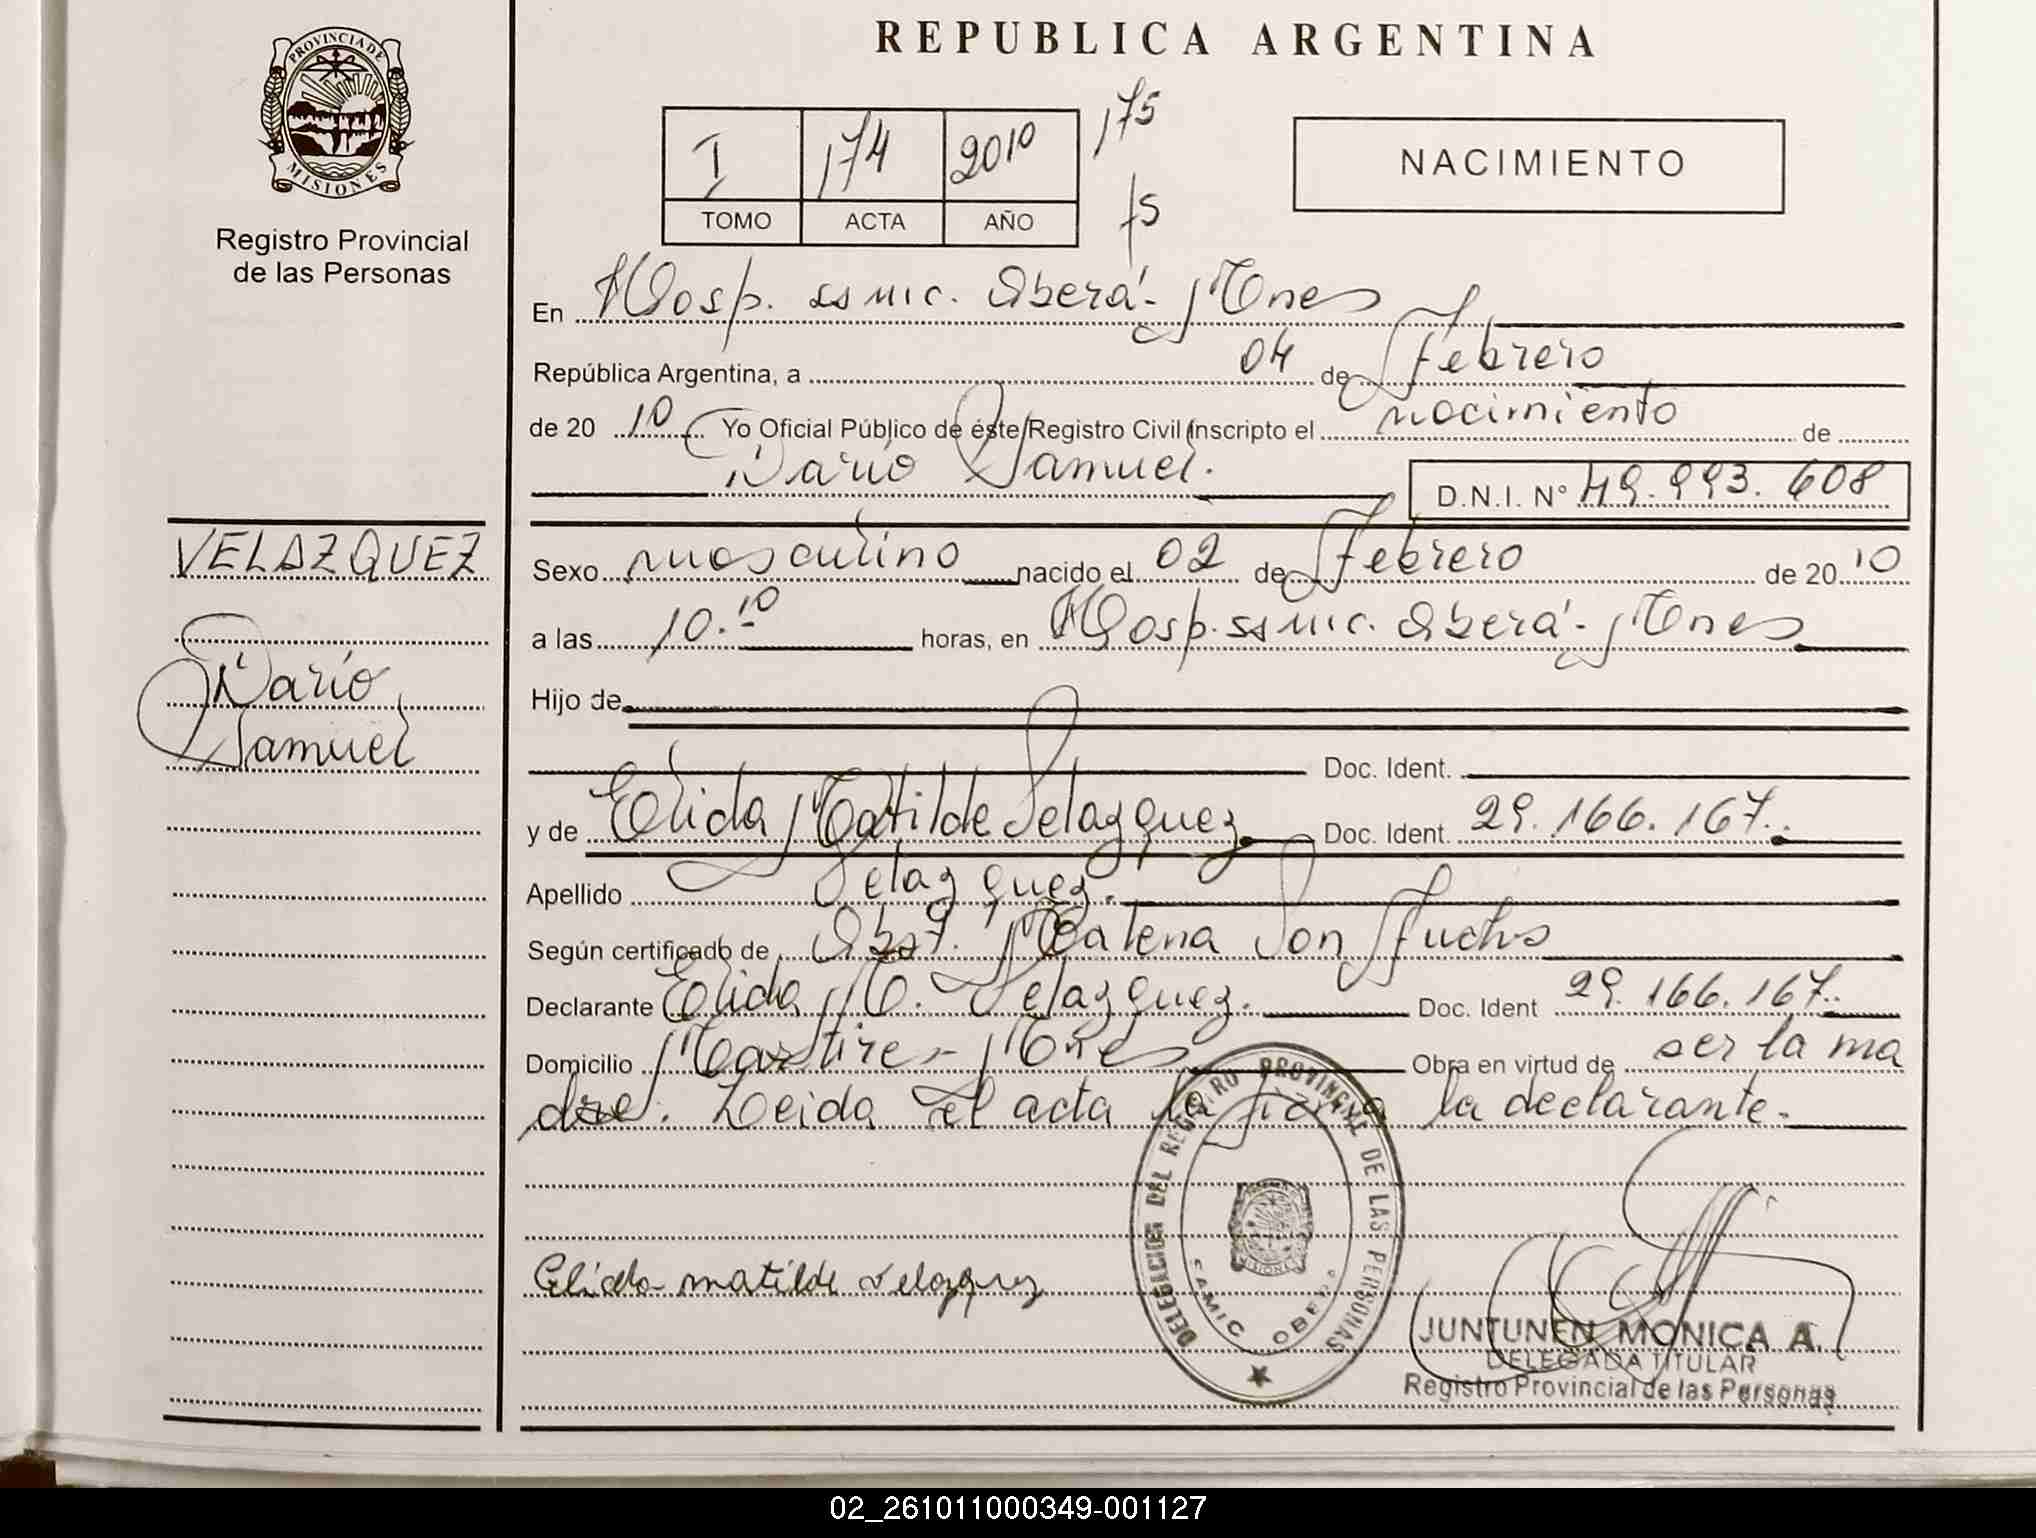 REPUBLICA ARGENTINA
PROVINCIA DE
MISIONES
Registro Provincial
de las Personas
I 174 2010 175
TOMO ACTA AÑO 75
NACIMIENTO
En Hosp. ssmic. Oberá - Mnes
República Argentina, a 04 de Febrero
de 20 10 Yo Oficial Público de éste Registro Civil inscripto el nacimiento de
Darío Samuel. D.N.I. N° 49.993.608
VELAZQUEZ
Darío
Samuel
Sexo masculino nacido el 02 de Febrero de 20 10
a las 10.10 horas, en Hosp. ssmic. Oberá - Mnes
Hijo de
Doc. Ident.
y de Elida Matilde Velazquez Doc. Ident. 29.166.167.
Apellido Velazquez.
Según certificado de Obst. Malena Von Fuchs
Declarante Elida M. Velazquez. Doc. Ident 29.166.167.
Domicilio Martires - Mnes Obra en virtud de ser la ma
dre. Leida el acta la firma la declarante.
Elida matilde Velazquez
DELEGACION DEL REGISTRO PROVINCIAL DE LAS PERSONAS
SAMIC OBERA
MISIONES
JUNTUNEN MONICA A.
DELEGADA TITULAR
Registro Provincial de las Personas
02_261011000349-001127